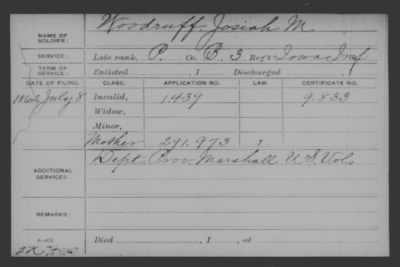 Woodruff, Josiah M.
NAME OF SOLDIER:
SERVICE: Late rank, P. Co. E. 3 Reg't Iowa Inf
TERM OF SERVICE: Enlisted , 1 Discharged , 1
DATE OF FILING. CLASS. APPLICATION NO. LAW. CERTIFICATE NO.
1862 July 8 Invalid, 1439 9.833
Widow,
Minor,
Mother 291.973
ADDITIONAL SERVICES: Dept Prov. Marshall U S Vols
REMARKS:
Died , 1 , at